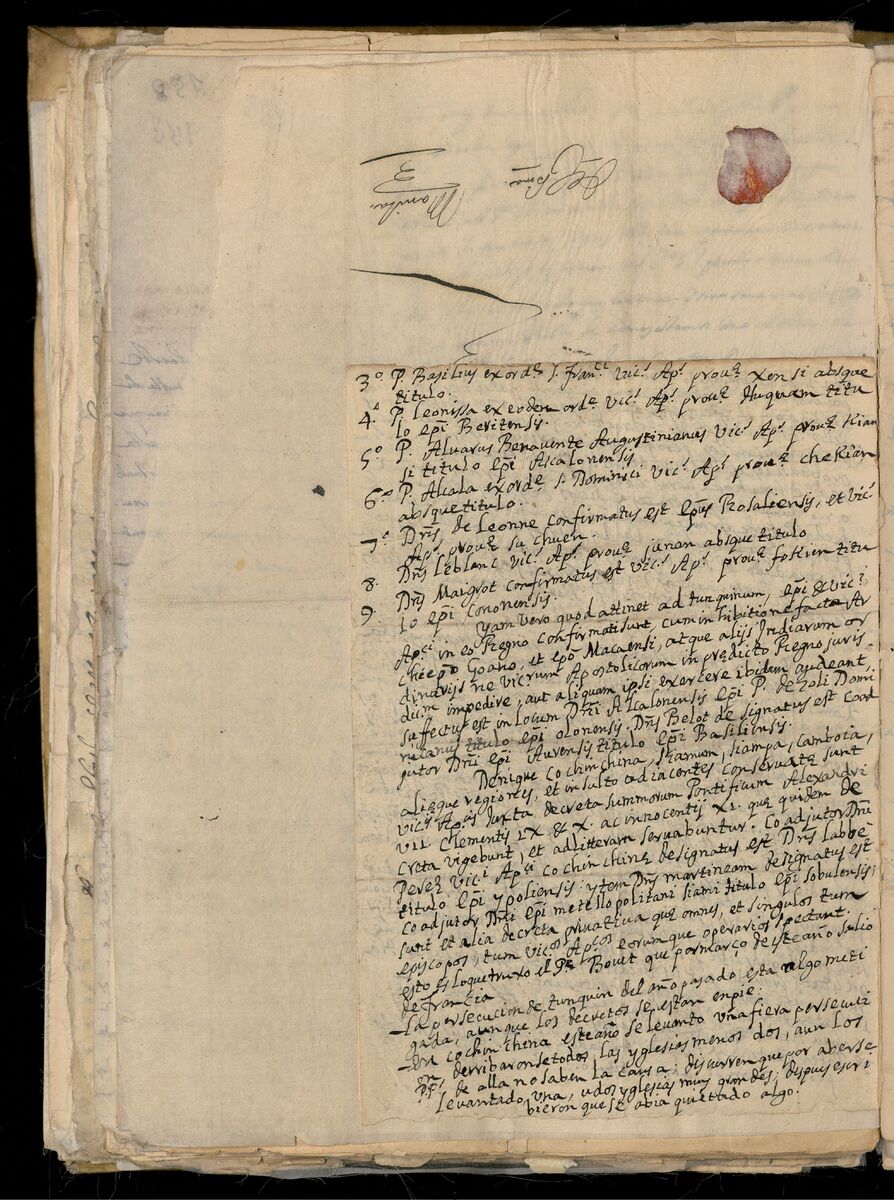 Manila.
3
3º P. Basilius ex ord.ᵉ S. Franc.ᶜⁱ Vic.ˢ Ap.ˢ prou.ᵉ Xensi absque
titulo.
4º P. Leonissa ex eodem ord.ᵉ Vic.ˢ Ap.ˢ prou.ᵉ Huquam titu
lo epi Beritensis.
5º P. Alvarus Benavente Augustinianus Vic.ˢ Ap.ˢ prou.ᵉ Kian
si titulo epi Ascalonensis
6º P. Alcala ex ord.ᵉ S. Dominici Vic.ˢ Ap.ˢ prou.ᵉ Chekian
absque titulo.
7º Dnẽs, de Leonne confirmatus est epũs Rosaliensis, et Vic.ˢ
Ap.ˢ prou.ᵉ Su chuen.
8. Dnẽs Leblanc Vic.ˢ Ap.ˢ prou.ᵉ junan absque titulo
9. Dnẽs Maigrot confirmatus est Vic.ˢ Ap.ˢ prou.ᵉ fokien titu
lo epi Cononensis.
Yam vero quod attinet ad tunquinum, epi & Vic.ⁱ
Apᶜⁱ in eo Regno confirmati sunt, cum inhibitione facta Ar
chiepõ Goano, et epõ Macaensi, atque alijs Indiarum or
dinarijs ne Vicrum Apostolicorum in predicto Regno juris
dium impedire, aut aliquam ipsi exercere ibidem audeant,
suffectus est in locum Dnĩ Ascalonensis epi P. de Zoli Domi
nicanus titulo epi olonensis. Dnẽs Belot designatus est coad
jutor Dnĩ epi Aurensis titulo epi Basiliensis.
Denique Cochinchina, Siamum, Siampa, Camboia,
aliæque regiones, et insulæ adiacentes conservatæ sunt
Vicˢ Apᶜⁱˢ juxta decreta summorum Pontificum Alexandri
VII Clementis IX & X. ac innocentis XI. quæ quidem de
creta vigebunt, et ad litteram servabuntur. Coadjutor Dnĩ
Perez Vicⁱ Apᶜⁱ Cochinchinæ designatus est Dnẽs Labbé
titulo epi ypoliensis: ytem Dnẽs martineam designatus est
coadjutor Dnĩ epi metellopolitani siami titulo epi sobulensis;
sunt et alia decreta privativa quæ omnes, et singulos tum
episcopos, tum Vicᵒˢ Apᶜᵒˢ eorumque operarios spectant.
esto es loque truxo el Pᵉ Bouet que por março de este año salio
de francia
– La persecucion de tunquin del año pasado esta algo miti
gada, aunque los decretos se estan en pie:
– En cochin china este año se levanto vna fiera persecuci
on, derribaronse todos, las yglesias menos dos, aun los
PP. de alla no saben la causa; discurren que por averse
levantado, vna, v dos yglesias muy grandes; despues escri
bieron que se abia quiettado algo.